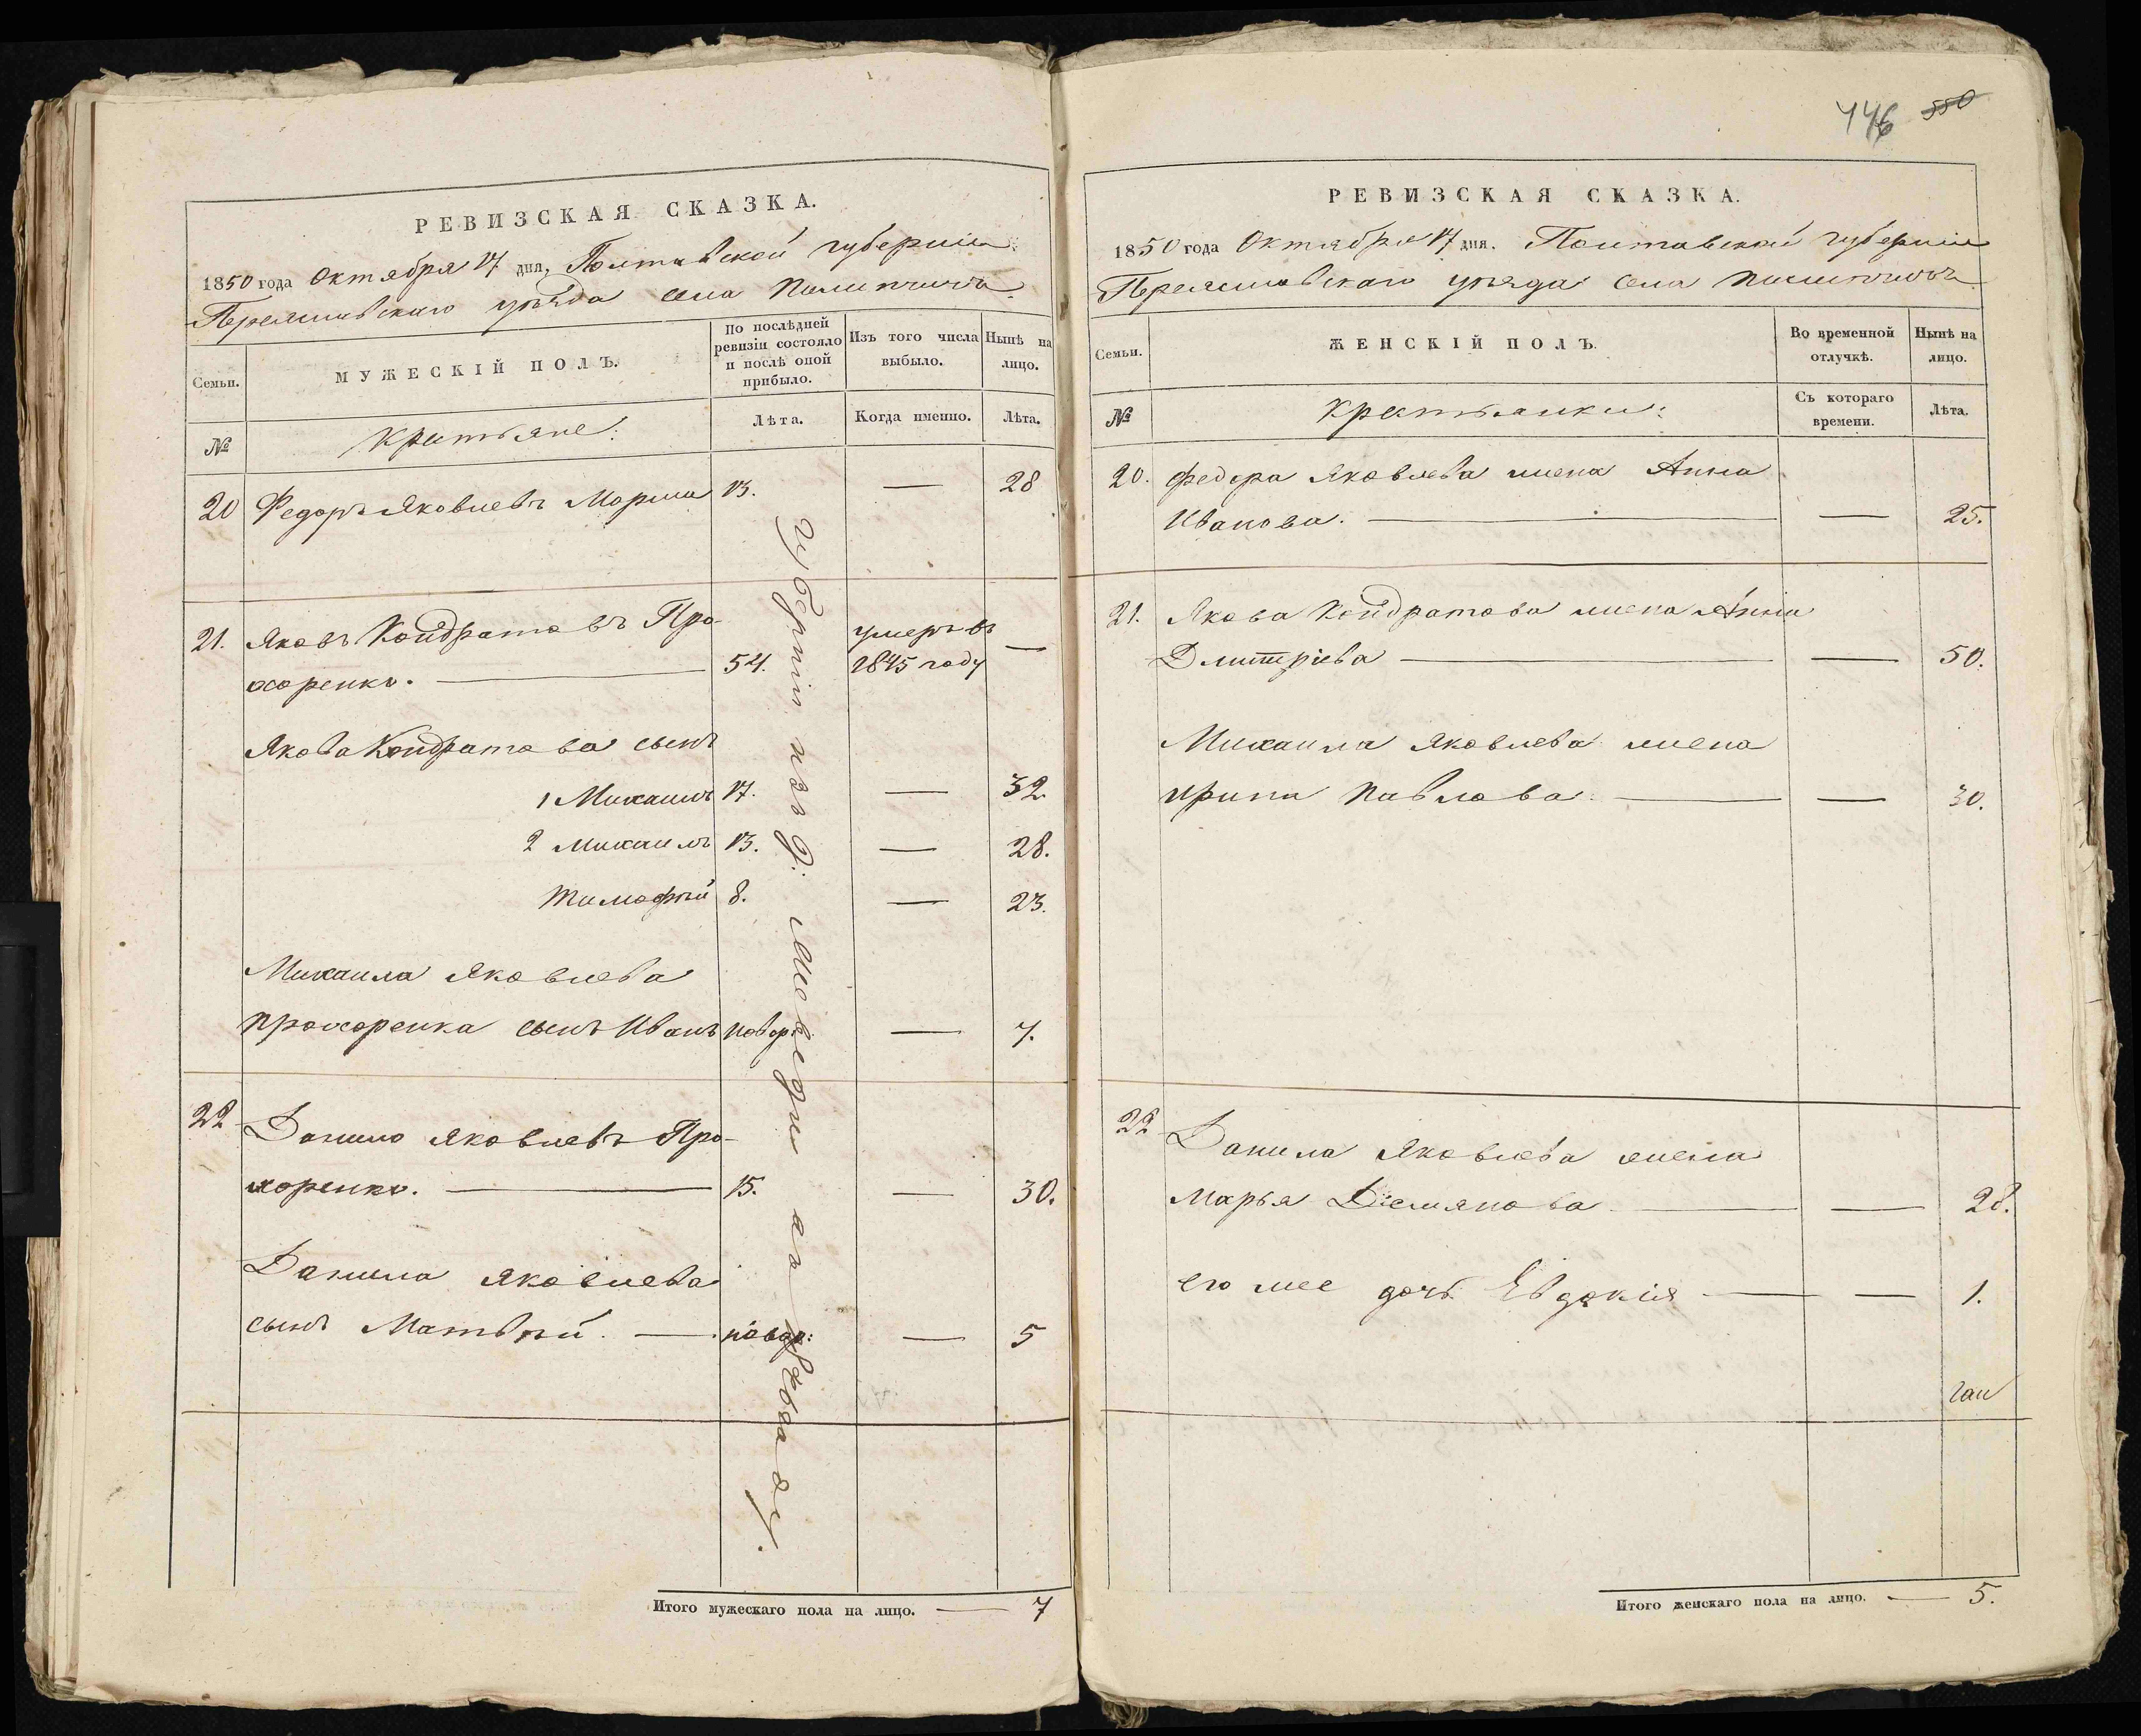 446 550
РЕВИЗСКАЯ СКАЗКА.
1850 года Октября 17 дня, Полтавской губерніи
Переяславскаго уѣзда села Пилипчичь
Семьи.
МУЖЕСКІЙ ПОЛЪ.
По послѣдней ревизіи состояло и послѣ оной прибыло.
Изъ того числа выбыло.
Нынѣ на лицо.
№
Крестьяне:
Лѣта.
Когда именно.
Лѣта.
20 Федоръ Яковлевъ 13. — 28
21. Яковъ Кондратовъ Про-
хоренко. — 54. умеръ въ 1845 году —
Якова Кондратова сынъ
1 Михаилъ 17. — 32.
2 Михаилъ 13. — 28.
Тимофѣй 8. — 23.
Михаила Яковлева
Прохоренка сынъ Иванъ новор: — 7.
22 Данило Яковлевъ Про-
хоренко. — 15. — 30.
Данила Яковлева
сынъ Матвѣй. — новор: — 5
губерніи
Итого мужескаго пола на лицо. — 7
РЕВИЗСКАЯ СКАЗКА.
1850 года Октября 17 дня. Полтавской губерніи
Переяславскаго уѣзда села Пилипчичь
Семьи.
ЖЕНСКІЙ ПОЛЪ.
Во временной отлучкѣ.
Нынѣ на лицо.
№
Крестьянки:
Съ котораго времени.
Лѣта.
20. Федора Яковлева жена Анна
Иванова. — — 25.
21. Якова Кондратова жена Анна
Дмитріева — — 50.
Михаила Яковлева жена
Ирина Павлова. — — 30.
22 Данила Яковлева жена
Марья Демянова — — 28.
его же дочь Евдокія — — 1.
Итого женскаго пола на лицо. — 5.